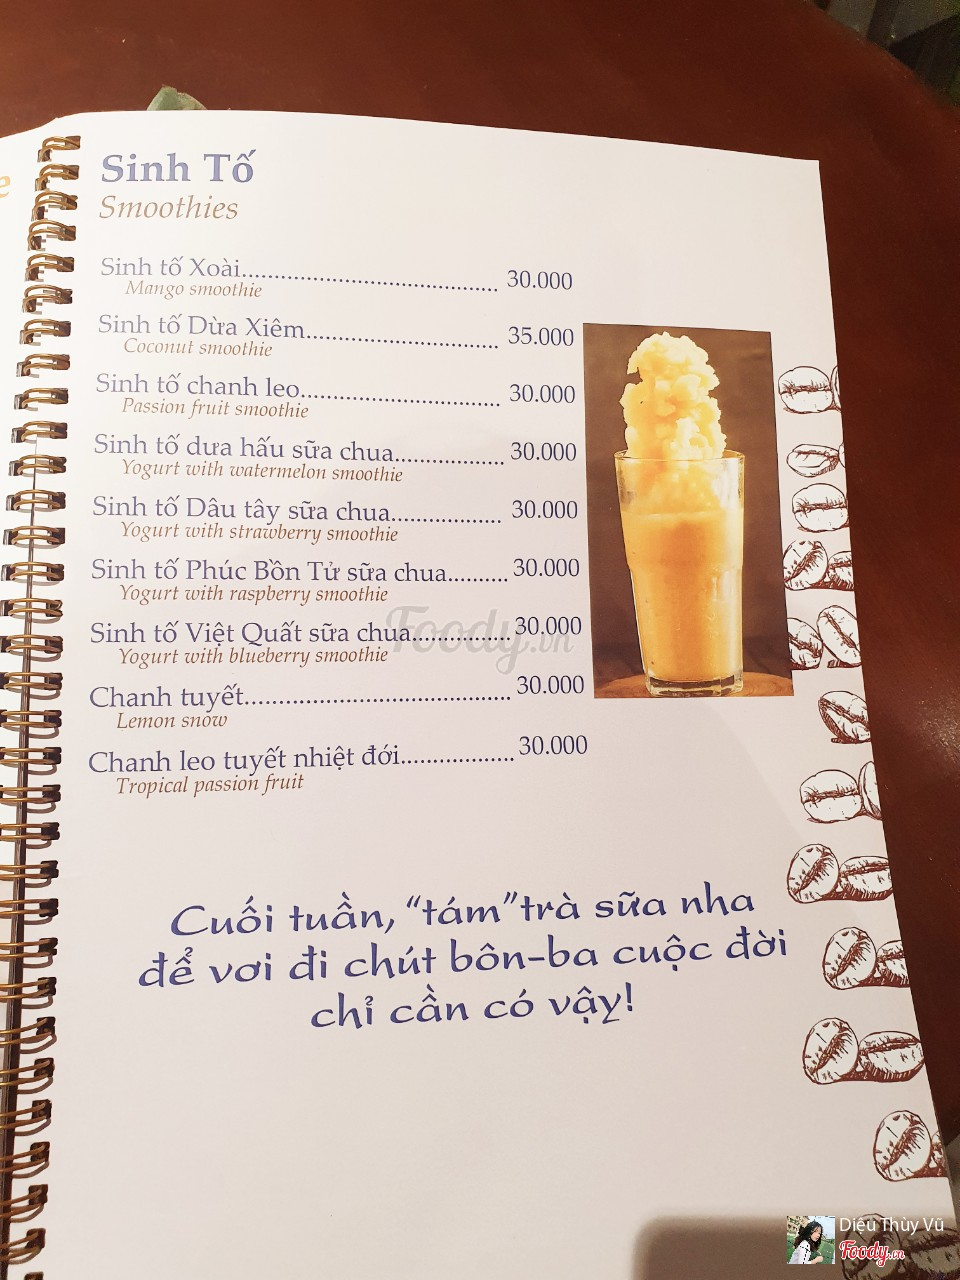 e
Sinh Tố
Smoothies
Sinh tố Xoài.......................................... 30.000
Mango smoothie
Sinh tố Dừa Xiêm................................ 35.000
Coconut smoothie
Sinh tố chanh leo................................. 30.000
Passion fruit smoothie
Sinh tố dưa hấu sữa chua.................. 30.000
Yogurt with watermelon smoothie
Sinh tố Dâu tây sữa chua................... 30.000
Yogurt with strawberry smoothie
Sinh tố Phúc Bồn Tử sữa chua.......... 30.000
Yogurt with raspberry smoothie
Sinh tố Việt Quất sữa chua................ 30.000
Yogurt with blueberry smoothie
Chanh tuyết.......................................... 30.000
Lemon snow
Chanh leo tuyết nhiệt đới................... 30.000
Tropical passion fruit
Foody.vn
Cuối tuần, “tám” trà sữa nha
để vơi đi chút bôn-ba cuộc đời
chỉ cần có vậy!
Diệu Thùy Vũ
Foody.vn